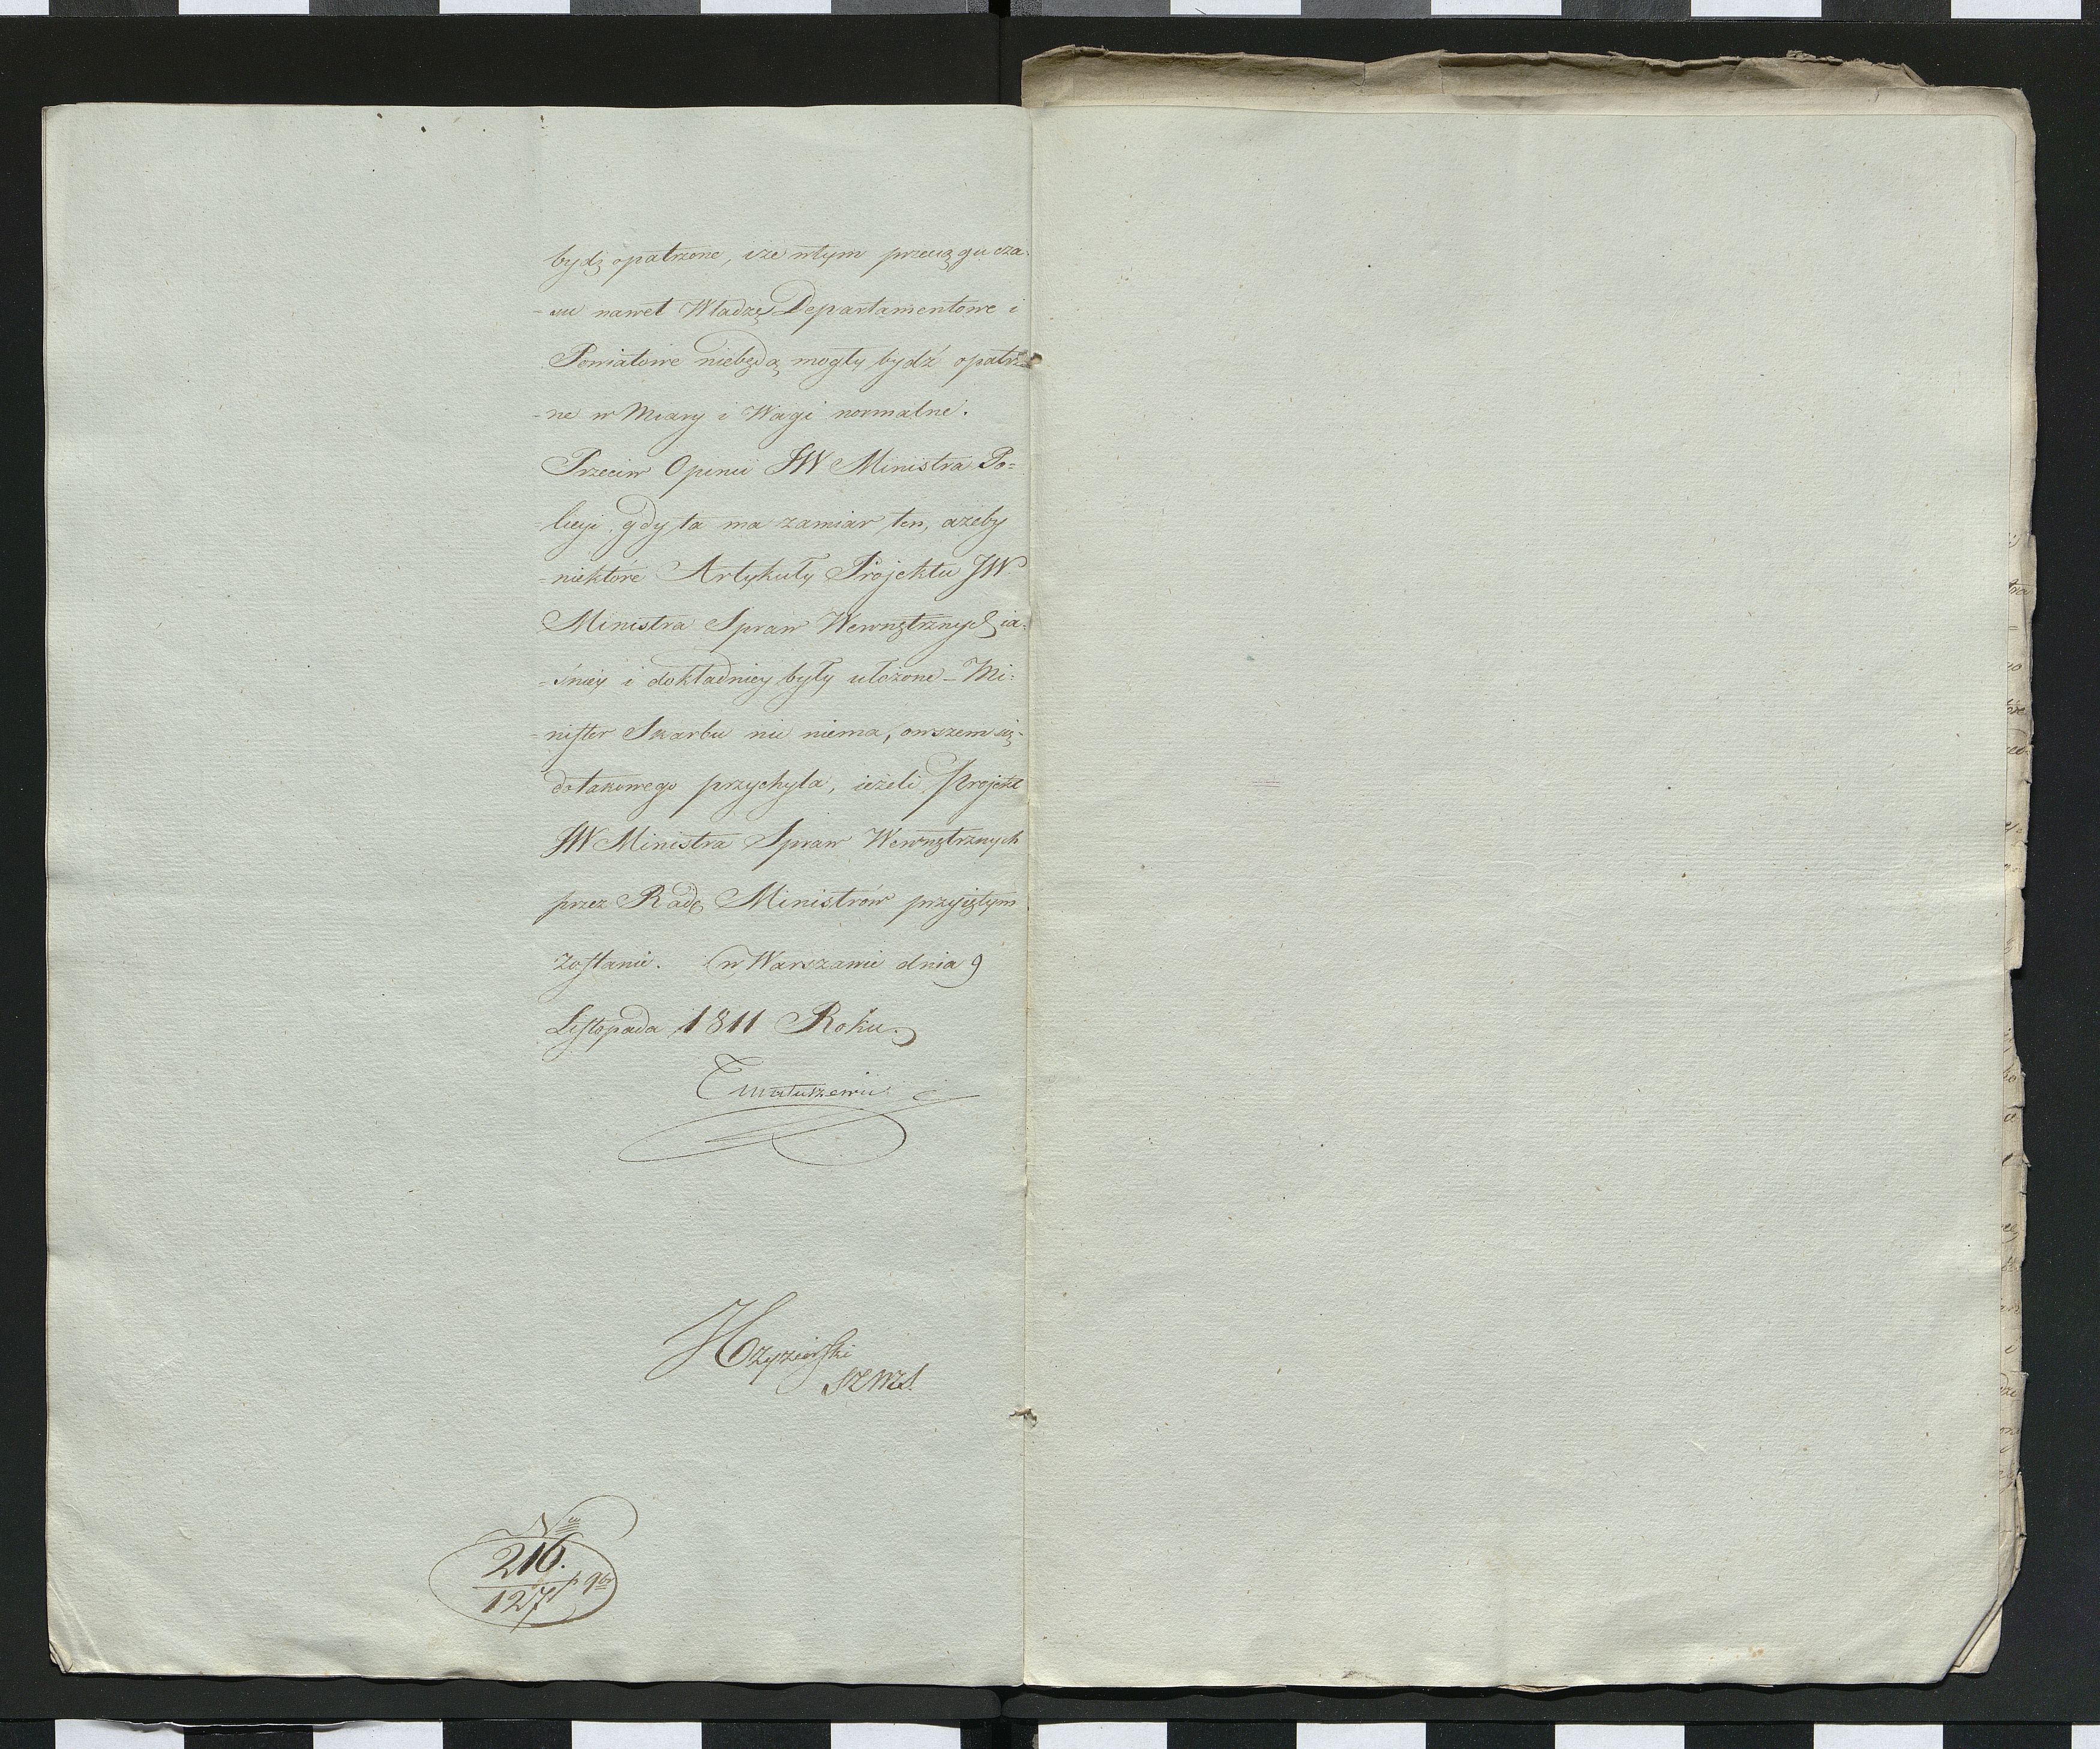 bydź opatrzone, iże w tym przeciągu cza-
-su nawet Władze Departamentowe i
Powiatowe niebędą mogły bydź opatrzo
-ne w Miary i Wagi normalne.
Przeciw Opinii JW Ministra Po=
-licyi, gdy ta ma zamiar ten, ażeby
-niektóre Artykuły Projektu JW
Ministra Spraw Wewnętrznych ia=
=śniey i dokładniey były ułożone – Mi=
-nister Skarbu nic niema, owszem się
do takowego przychyla, ieżeli Projekt
JW Ministra Spraw Wewnętrznych
przez Radę Ministrów przyiętym
zostanie. w Warszawie dnia 9
Listopada 1811 Roku.
T Matuszewic
No
216.
127 p 9br